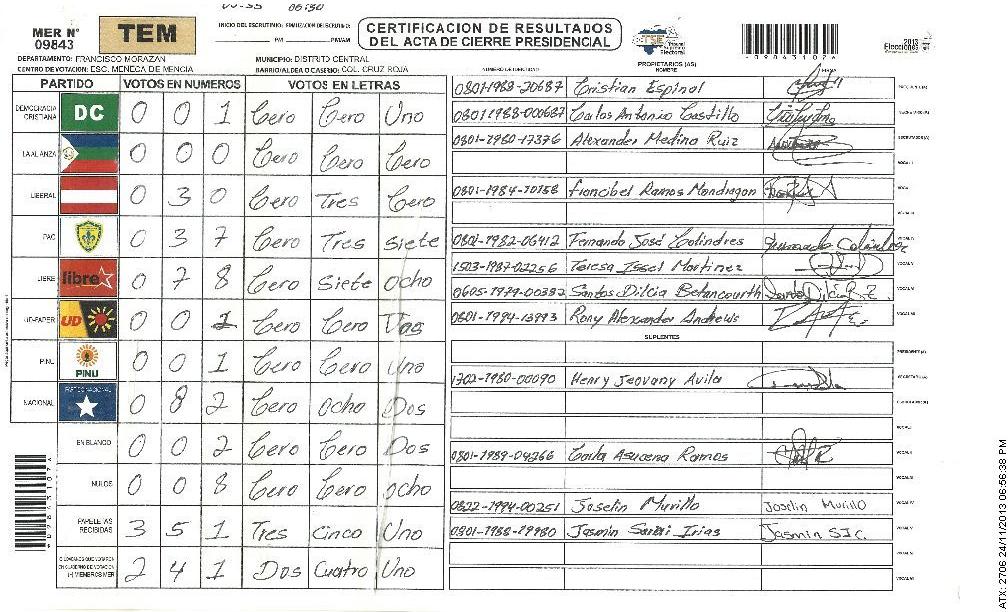 06:30
MER N° 09843
TEM
CERTIFICACION DE RESULTADOS
DEL ACTA DE CIERRE PRESIDENCIAL
Tribunal Supremo Electoral
2013 Elecciones
DEPARTAMENTO: FRANCISCO MORAZAN
MUNICIPIO: DISTRITO CENTRAL
CENTRO DE VOTACION: ESC. MENECA DE MENCIA
BARRIO/ALDEA O CASERIO: COL. CRUZ ROJA
NUMERO DE IDENTIDAD PROPIETARIOS (AS) NOMBRE FIRMA
PARTIDO VOTOS EN NUMEROS VOTOS EN LETRAS
DEMOCRACIA CRISTIANA DC 0 0 1 Cero Cero Uno
LA ALIANZA 0 0 0 Cero Cero Cero
LIBERAL 0 3 0 Cero Tres Cero
PAC 0 3 7 Cero Tres Siete
LIBRE libre 0 7 8 Cero Siete Ocho
UD-FAPER UD 0 0 Cero Cero
PINU PINU 0 0 1 Cero Cero Uno
NACIONAL PARTIDO NACIONAL 0 8 2 Cero Ocho Dos
EN BLANCO 0 0 2 Cero Cero Dos
NULOS 0 0 8 Cero Cero Ocho
PAPELETAS RECIBIDAS 3 5 1 Tres Cinco Uno
CIUDADANOS QUE VOTARON EN CUADERNO DE VOTACION (+) MIEMBROS MER 2 4 1 Dos Cuatro Uno
0801-1989-20687 Cristian Espinal PRESIDENTE(A)
0801-1988-000687 Carlos Antonio Castillo SECRETARIO(A)
0801-1980-17376 Alexander Medina Ruiz ESCRUTADOR(A)
VOCAL I
0801-1984-10158 Francibel Ramos Mondragon
0801-1982-06412 Fernando José Colindres
1503-1987-02256 Teresa Issel Martinez
0605-1979-00382 Santos Dilcia Betancourth
0801-1994-13993 Rony Alexander Andrews
SUPLENTES
PRESIDENTE(A)
1702-1980-00090 Henry Jeovany Avila SECRETARIO(A)
ESCRUTADOR(A)
VOCAL I
0801-1989-04266 Carla Asucena Ramos VOCAL II
VOCAL III
0822-1994-00251 Joselin Murillo Joselin Murillo VOCAL IV
0801-1988-19980 Jasmin Irias Jasmin VOCAL V
ATX: 2706 24/11/2013 06:56:38 PM